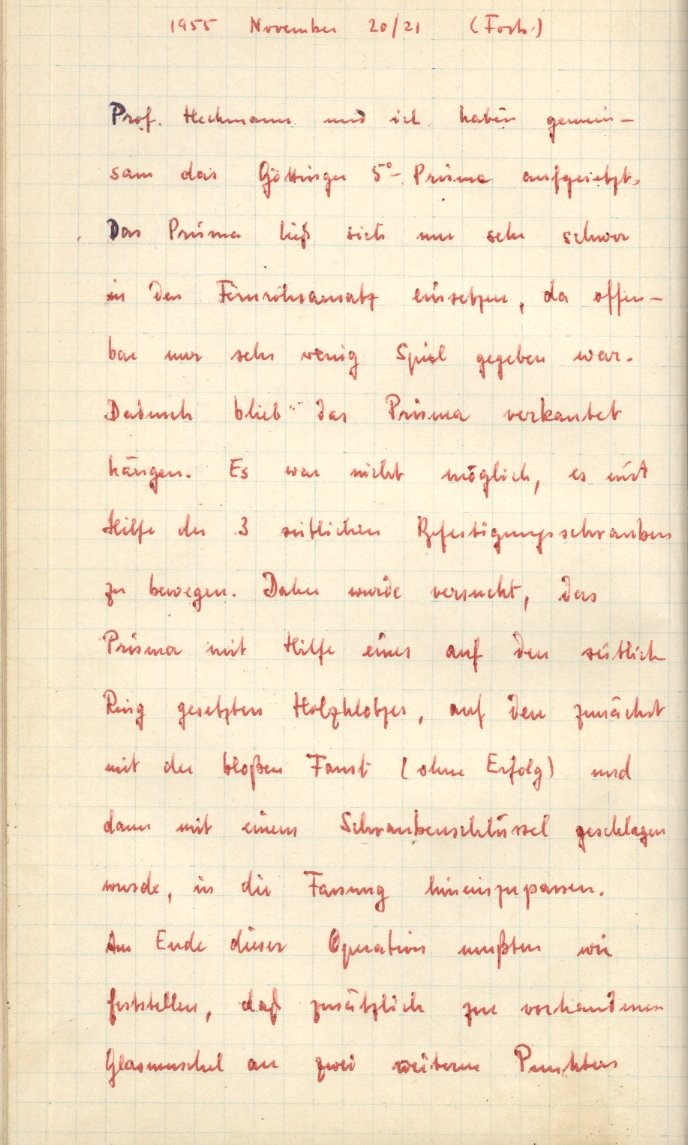 1955 November 20/21 (Forts.)
Prof. Heckmann und ich haben gemein-
sam das Göttinger 5°-Prisma aufgesetzt.
Das Prisma ließ sich nur sehr schwer
in den Fernrohransatz einsetzen, da offen-
bar nur sehr wenig Spiel gegeben war.
Dadurch blieb das Prisma verkantet
hängen. Es war nicht möglich, es mit
Hilfe der 3 seitlichen Befestigungsschrauben
zu bewegen. Daher wurde versucht, das
Prisma mit Hilfe eines auf den seitlich
Ring gesetzten Holzklotzes, auf den zunächst
mit der bloßen Faust (ohne Erfolg) und
dann mit einem Schraubenschlüssel geschlagen
wurde, in die Fassung hineinzupassen.
Am Ende dieser Operation mußten wir
feststellen, daß zusätzlich zur vorhandenen
Glasmuschel an zwei weiteren Punkten